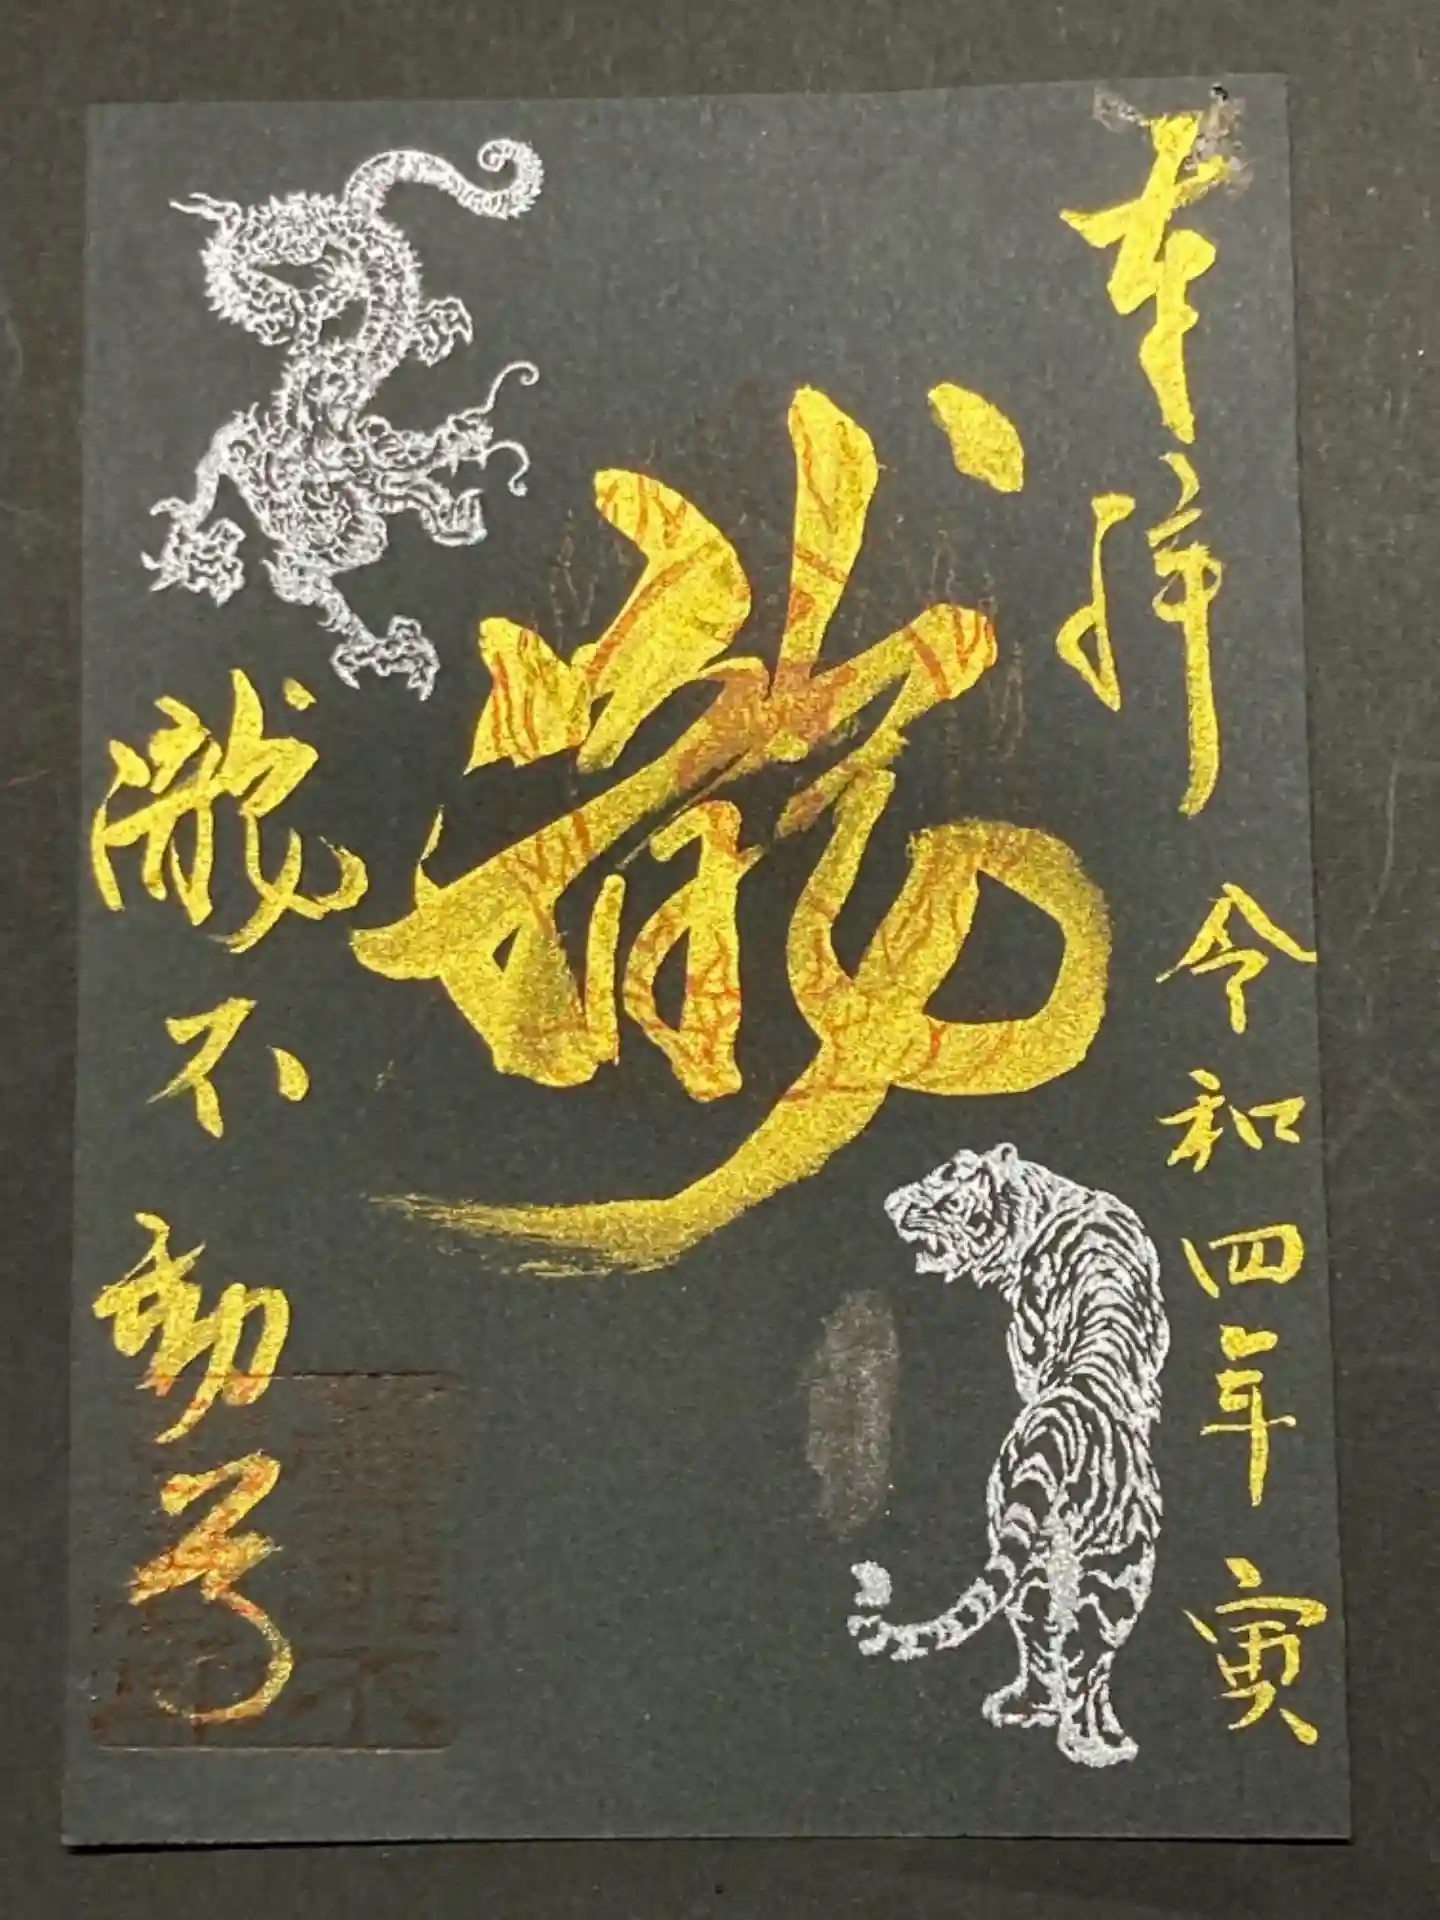 奉拝 令和四年 寅
龍
瀧不動